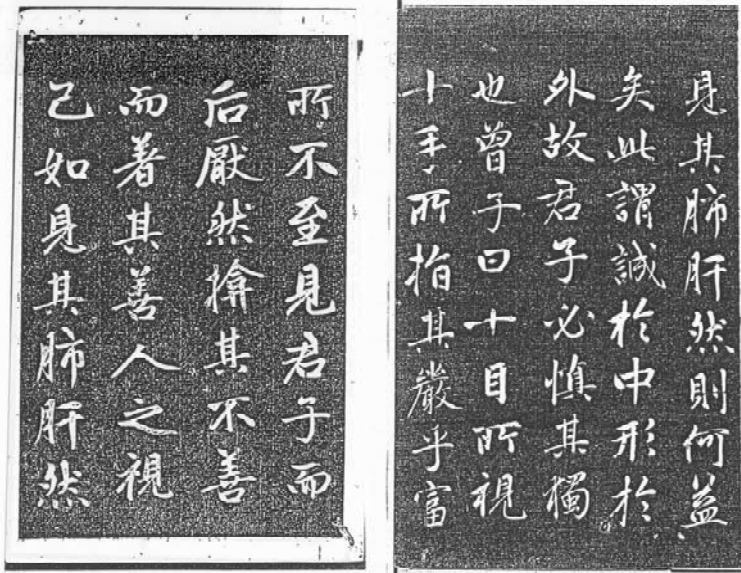 所不至見君子而
后厭然揜其不善
而著其善人之視
己如見其肺肝然
見其肺肝然則何益
矣此謂誠於中形於
外故君子必慎其獨
也曾子曰十目所視
十手所指其嚴乎富